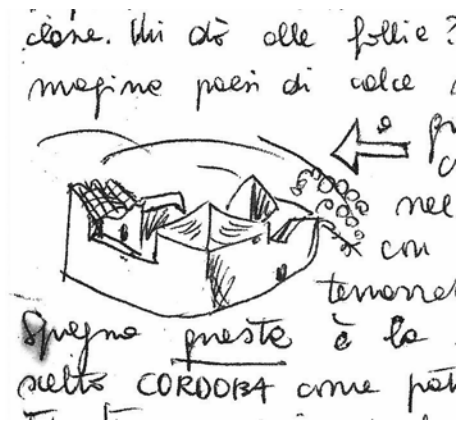 zione. Mi dò alle follie?
magino paesi di calce
è
nel
con
Spagna questa è la
scelto CORDOBA come